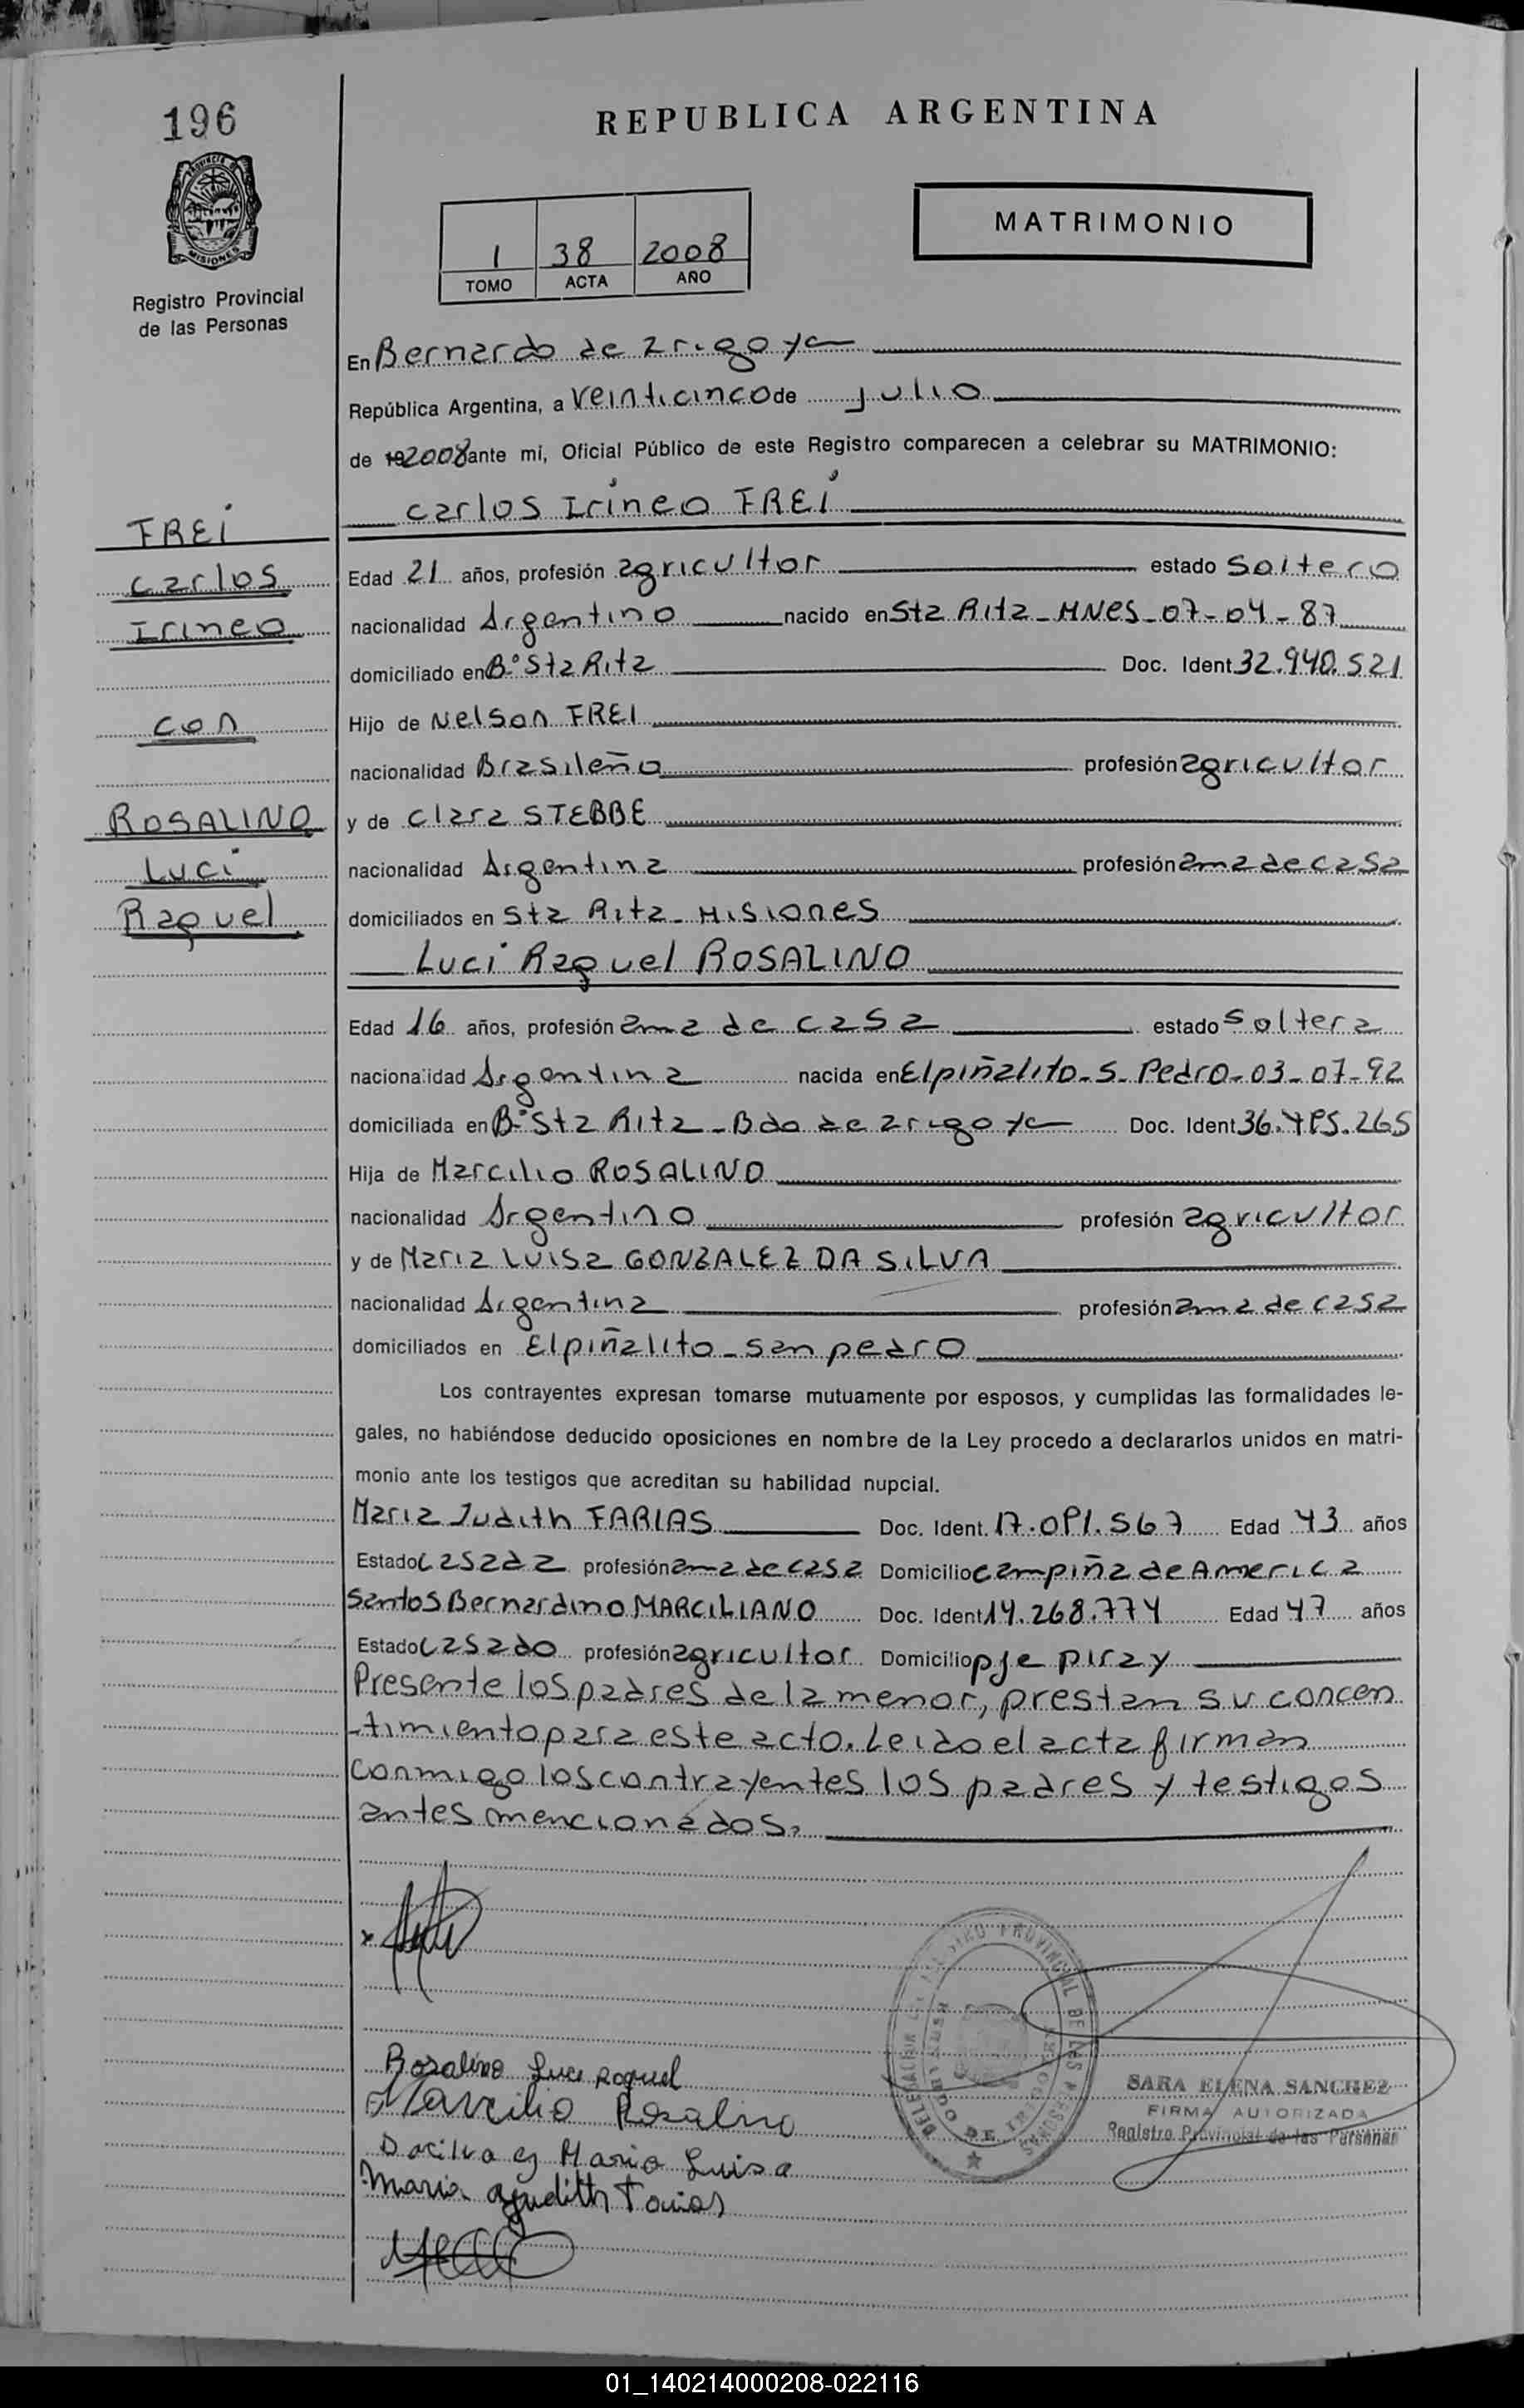 196
REPUBLICA ARGENTINA
PROVINCIA DE
MISIONES
Registro Provincial
de las Personas
1 38 2008
TOMO ACTA AÑO
MATRIMONIO
En Bernardo de Irigoyen
República Argentina, a Veinticinco de julio
de 19 2008 ante mi, Oficial Público de este Registro comparecen a celebrar su MATRIMONIO:
Carlos Irineo FREI
FREI
Carlos
Irineo
con
ROSALINO
Luci
Raquel
Edad 21 años, profesión agricultor estado Soltero
nacionalidad Argentino nacido en Sta Rita - MNES - 07-04-87
domiciliado en B° Sta Rita Doc. Ident. 32.940.521
Hijo de Nelson FREI
nacionalidad Brasileño profesión agricultor
y de Clara STEBBE
nacionalidad Argentina profesión ama de casa
domiciliados en Sta Rita - Misiones
Luci Raquel ROSALINO
Edad 16 años, profesión ama de casa estado Soltera
nacionalidad Argentina nacida en El piñalito - S. Pedro - 03-07-92
domiciliada en B° Sta Rita - Bdo de Irigoyen Doc. Ident
Hija de Marcilio ROSALINO
nacionalidad Argentino profesión agricultor
y de Maria Luisa GONZALEZ DA SILVA
nacionalidad Argentina profesión ama de casa
domiciliados en El piñalito - San pedro
Los contrayentes expresan tomarse mutuamente por esposos, y cumplidas las formalidades le-
gales, no habiéndose deducido oposiciones en nombre de la Ley procedo a declararlos unidos en matri-
monio ante los testigos que acreditan su habilidad nupcial.
Maria Judith FARIAS Doc. Ident. Edad 43 años
Estado Casada profesión ama de casa Domicilio campiña de America
Santos Bernardino MARCILIANO Doc. Ident 14.268.774 Edad 47 años
Estado Casado profesión agricultor Domicilio pje piray
Presente los padres de la menor, prestan su concen
-timiento para este acto. Leido el acta firman
conmigo los contrayentes los padres y testigos
antes mencionados.
Rosalino Luci Raquel
Marcilio Rosalino
Maria Luisa
Maria Judith Farias
REGISTRO PROVINCIAL DE LAS PERSONAS
SARA ELENA SANCHEZ
FIRMA AUTORIZADA
Registro Provincial de las Personas
01_140214000208-022116